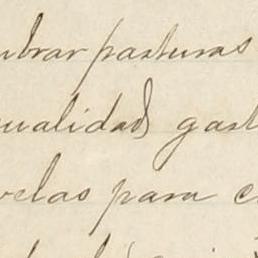 mbrar pasturas
ualidad gast
velas para c